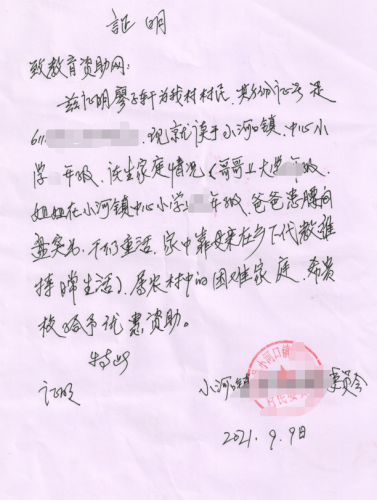 证明
致教育资助网:
兹证明廖子轩为我村村民,其身份证号是
611 ,现就读于小河口镇中心小
学 年级,该生家庭情况(哥哥上大学 年级,
姐姐在小河镇中心小学 年级,爸爸患腰间
盘突出,干不了重活,家中靠母亲在乡下代教维
持日常生活),属农村中的困难家庭,希贵
校给予优惠资助。
特此
证明
小河 镇 委员会
2021.9.9日